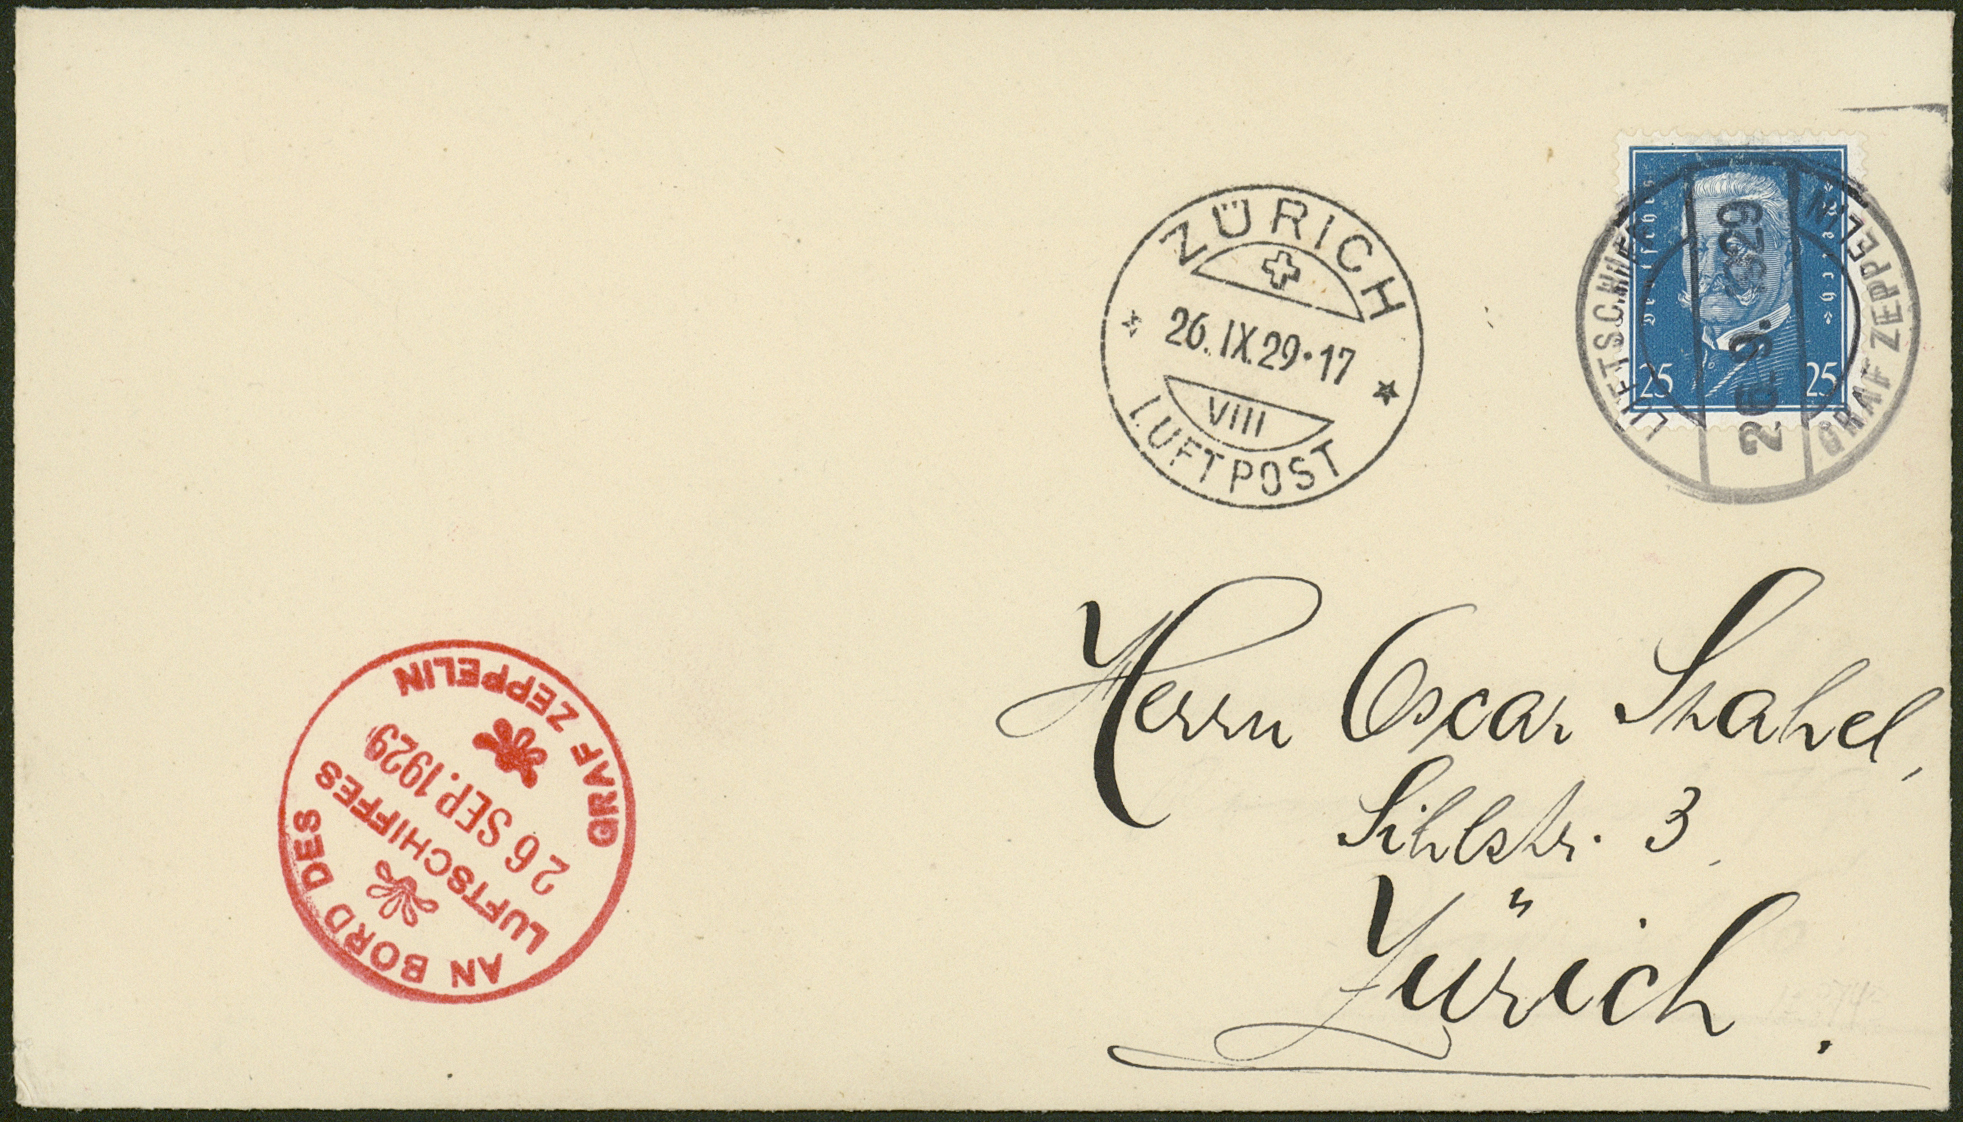 ZÜRICH
26.IX.29·17
VIII
LUFTPOST
Deutsches Reich
25 25
LUFTSCHIFF
26.9.1929
GRAF ZEPPELIN
Herrn Oscar Stahel,
Sihlstr. 3.
Zürich.
AN BORD DES
LUFTSCHIFFES
26 SEP. 1929
GRAF ZEPPELIN